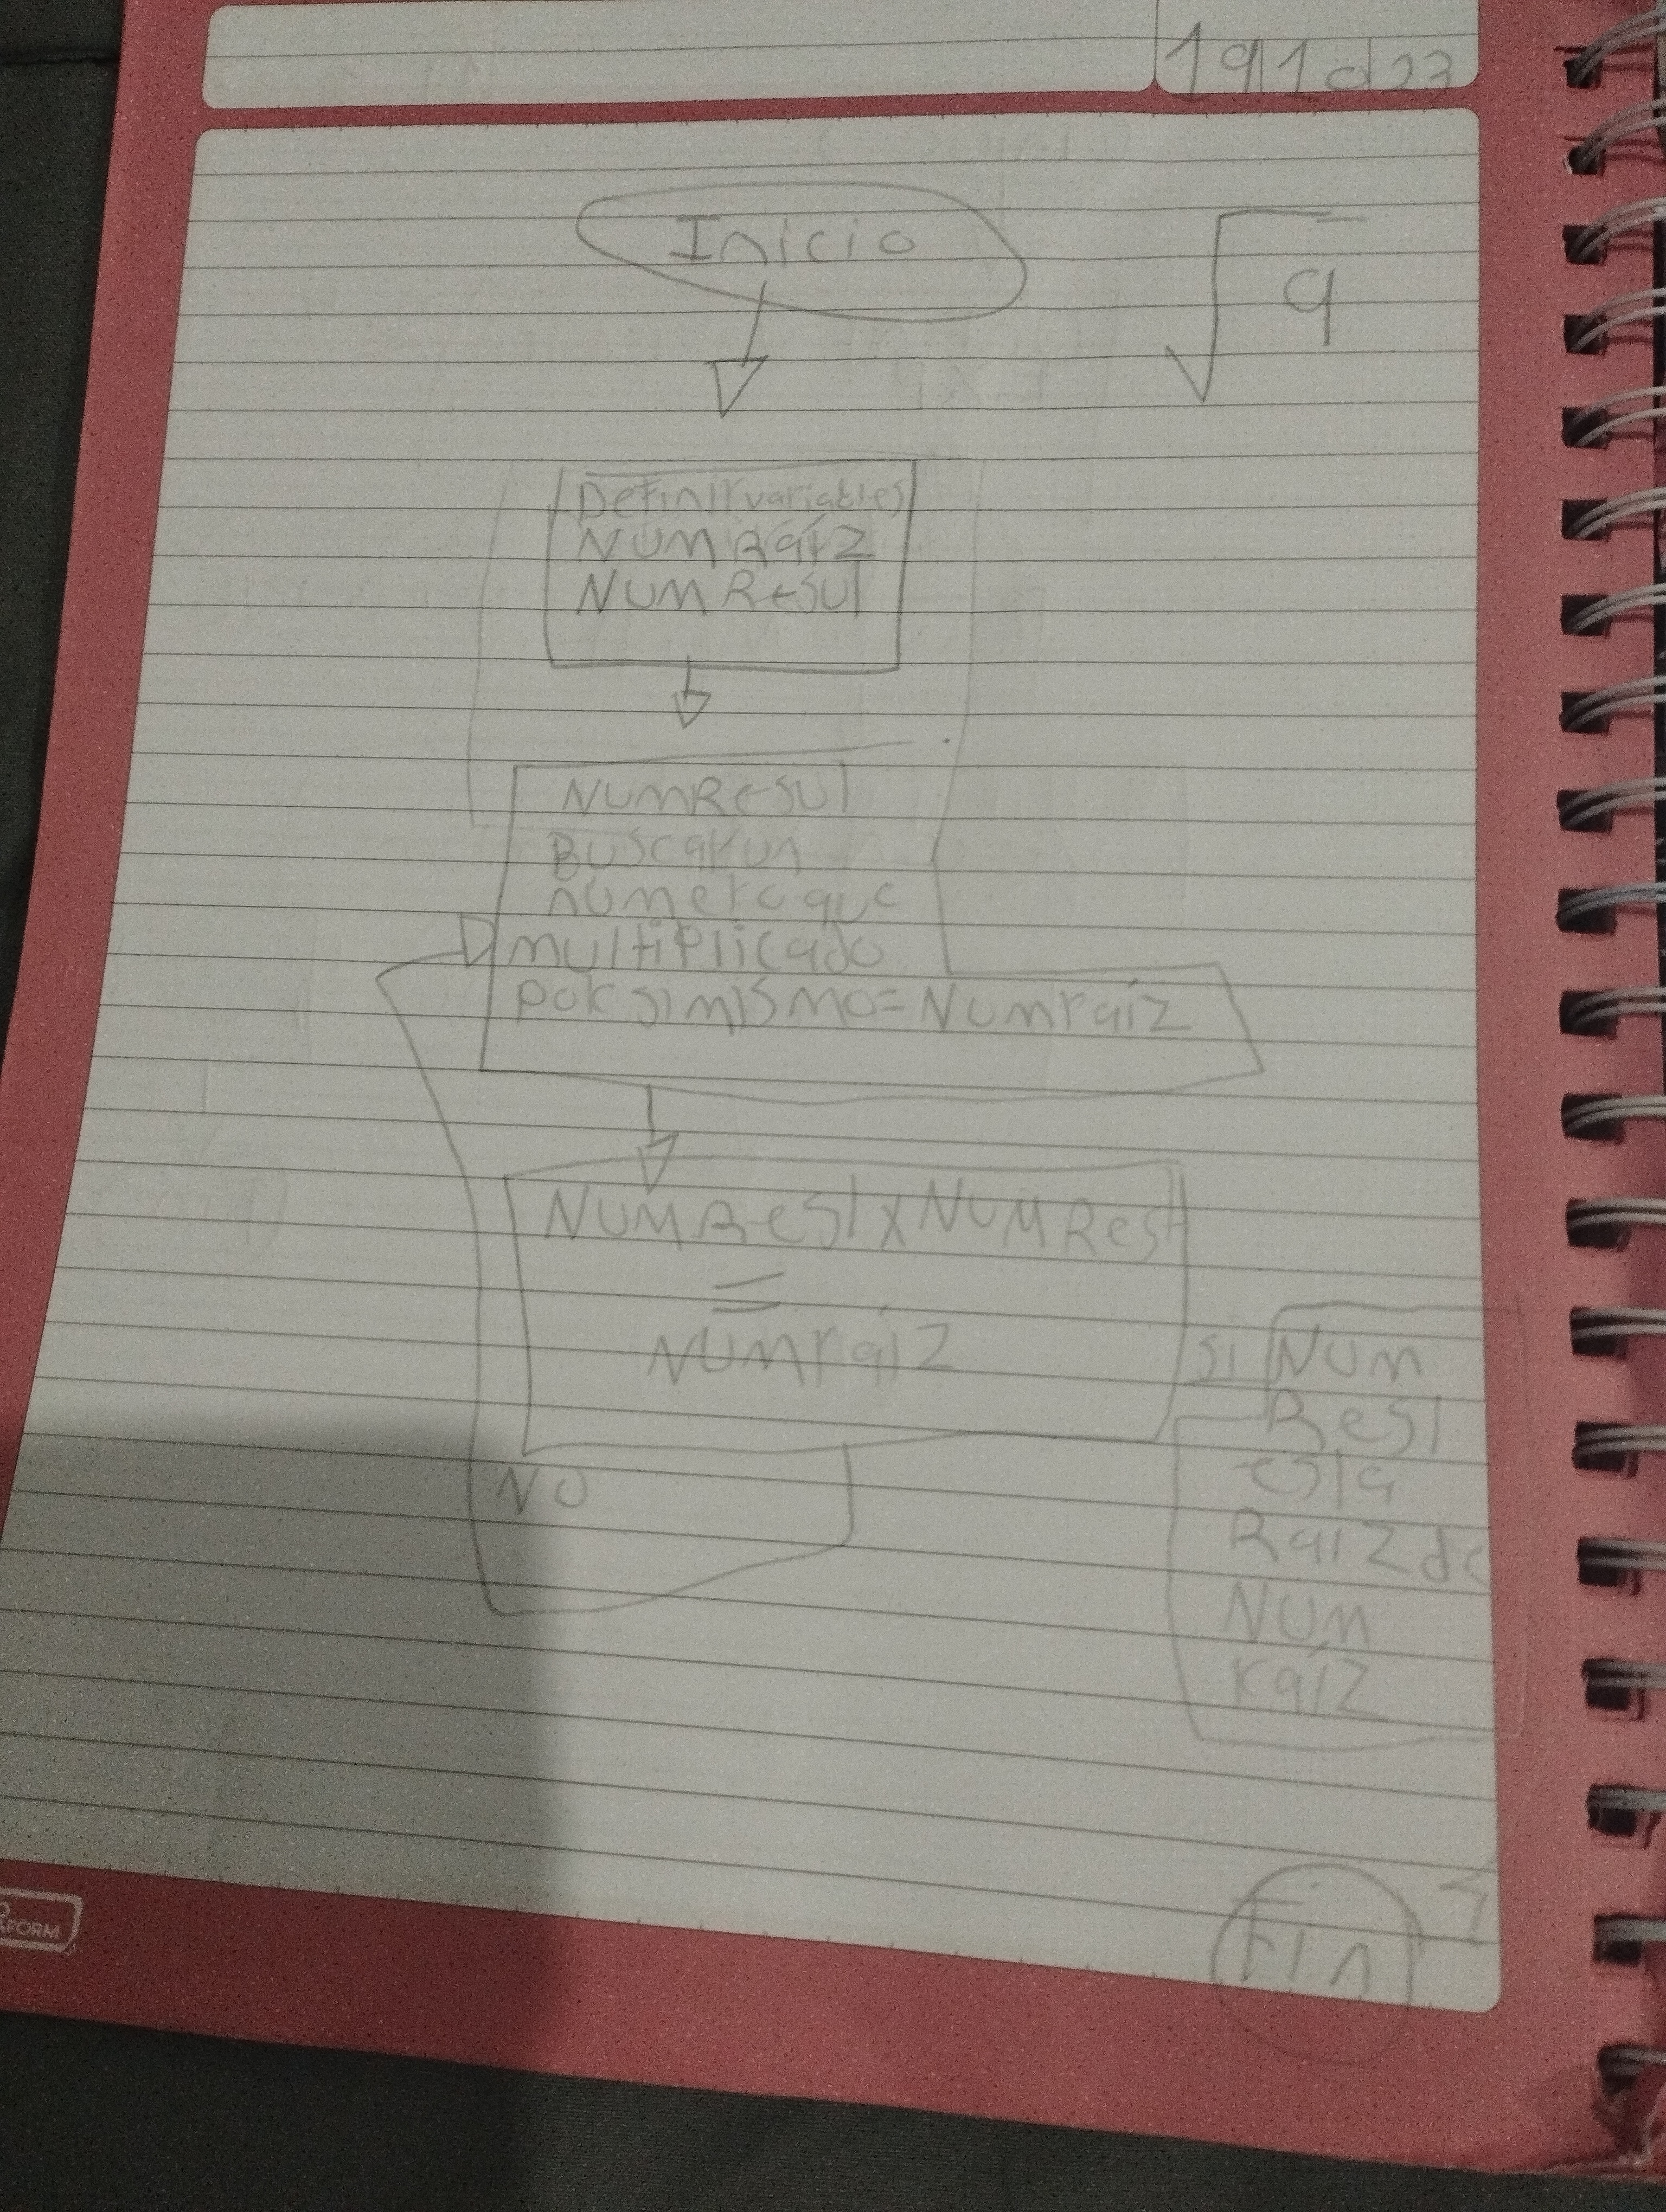 19 10 23
Inicio
√9
Definir variables
NUMRaíz
NUMResul
NUMResul
Buscar un
número que
multiplicado
por si mismo = Numraíz
NUMRest x NUMRest
=
NUMraiz
si
NUM
Rest
es la
Raiz de
NUM
raíz
NO
Fin
AFORM